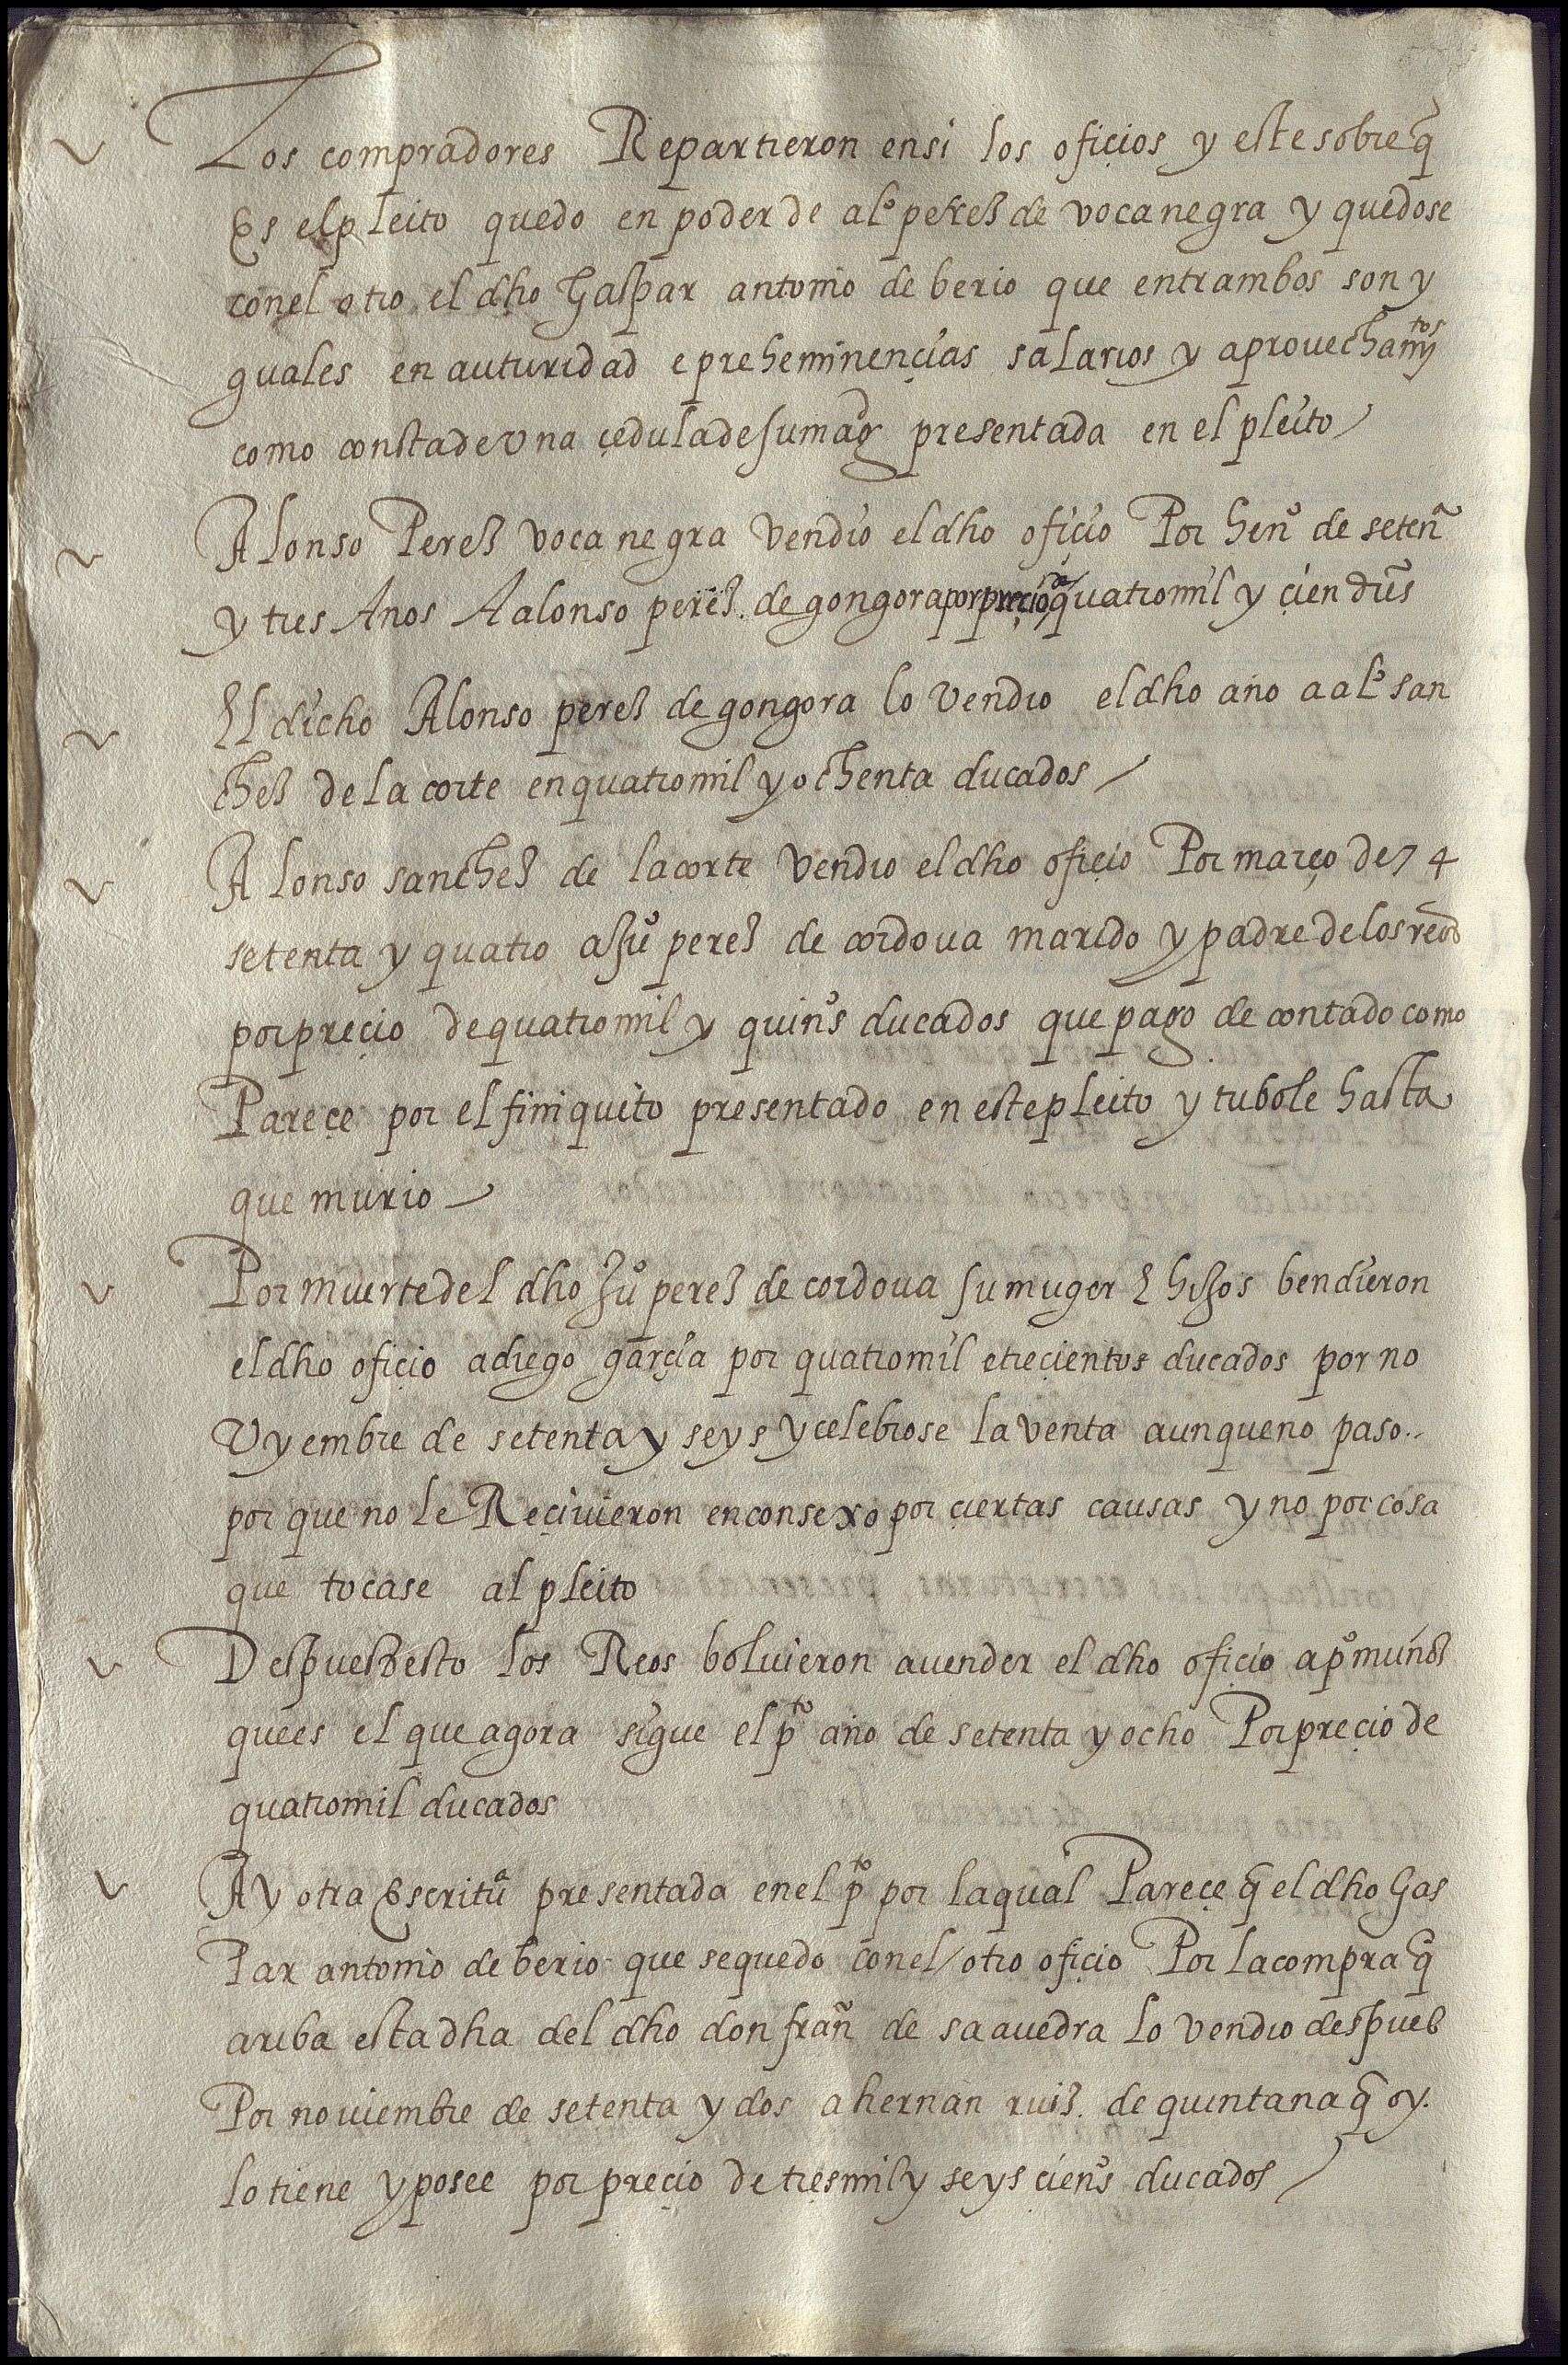 Los compradores Repartieron ensi los ofiçios y este sobre q̄
Es el pleito quedo en poder de alº perez de vocanegra y quedose
con el otro el dho Gaspar antonio de berio que entrambos son y
guales en auturidad e preheminençias salarios y aprouechamjtos
como consta de vna çedula de su magd presentada en el pleito
Alonso Perez vocanegra Vendio el dho ofiçio Por henº de setenª
y tres Anos A alonso perez de gongora por preçio de quatro mil y çien dus
El dicho Alonso perez de gongora lo Vendio el dho año a alº san
chez de la corte en quatro mil y ochenta ducados
Alonso sanchez de la corte Vendio el dho ofiçio Por março de 74
setenta y quatro a Juº perez de cordoua marido y padre de los reos
por preçio de quatro mil y quinºs ducados que pago de contado como
Pareçe por el finiquito presentado en este pleito y tubole hasta
que murio
Por muerte del dho Juº perez de cordoua su muger E hijos bendieron
el dho ofiçio a diego garçia por quatro mil e treçientos ducados por no
Vyembre de setenta y seys y celebrose la venta aunque no paso
por que no le Reçiuieron en consexo por çiertas causas y no por cosa
que tocase al pleito
Despues desto los Reos boluieron a uender el dho ofiçio a pº munoz
que es el que agora sigue el pto año de setenta y ocho Por preçio de
quatro mil ducados
Ay otra Escrituª presentada en el pto por la qual Pareçe q̄ el dho Gas
Par antonio de berio que se quedo con el otro ofiçio Por la compra q̄
ariba esta dha del dho don fran de saauedra lo vendio despues
Por nouiembre de setenta y dos a hernan ruiz de quintana q̄ oy
lo tiene y posee por preçio de tres mil y seys çienºs ducados